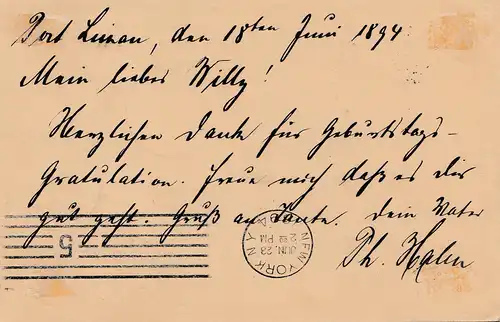 Port Limon, den 18ten Juni 1894.
Mein lieber Willy!
Herzlichen Dank für Geburtstags-
Gratulation. Freue mich daß es dir
gut geht. Gruß an Tante. Dein Vater
Ph. Hahn
NEW YORK N.Y.
JUN. 28
2 PM
5